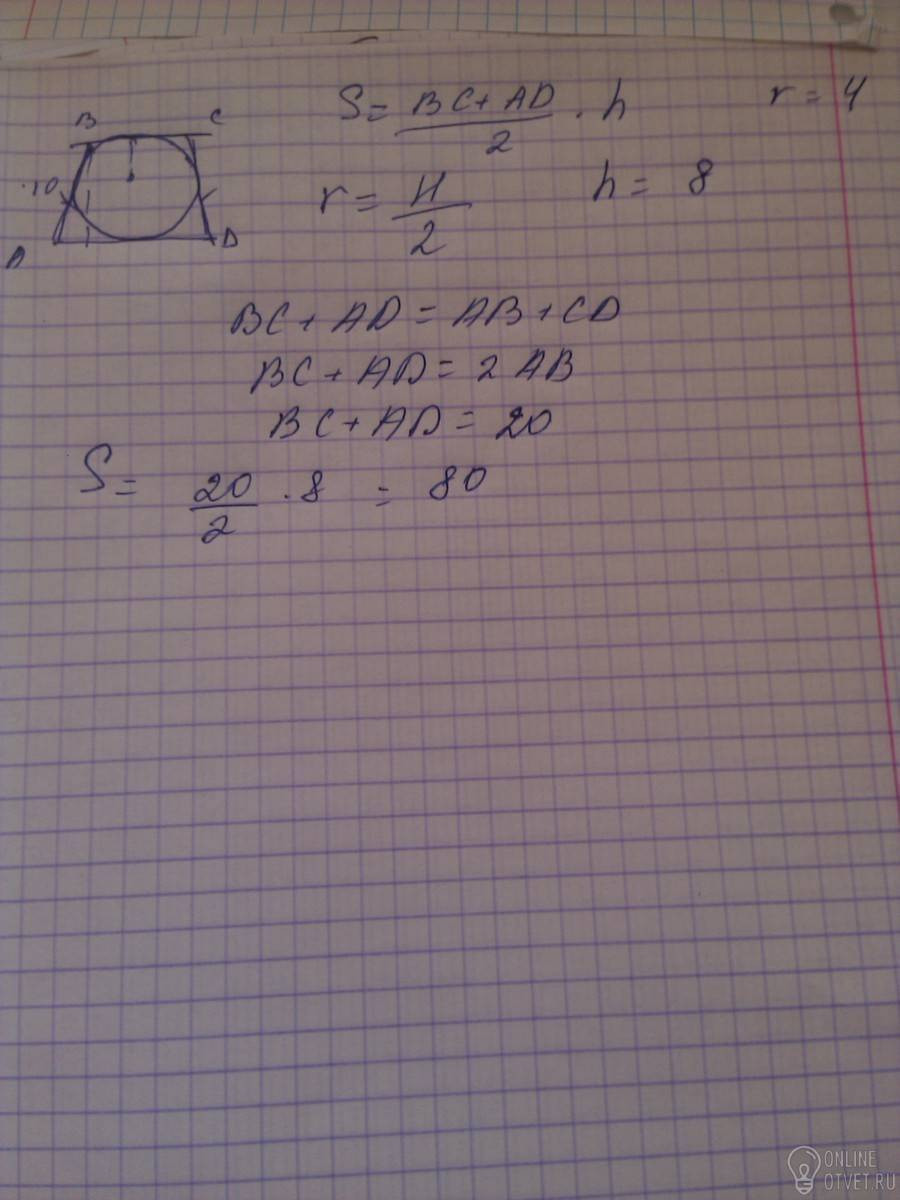 B C
10
A D
S = BC + AD / 2 · h r = 4
r = H / 2 h = 8
BC + AD = AB + CD
BC + AD = 2 AB
BC + AD = 20
S = 20 / 2 · 8 = 80
ONLINE
OTVET.RU